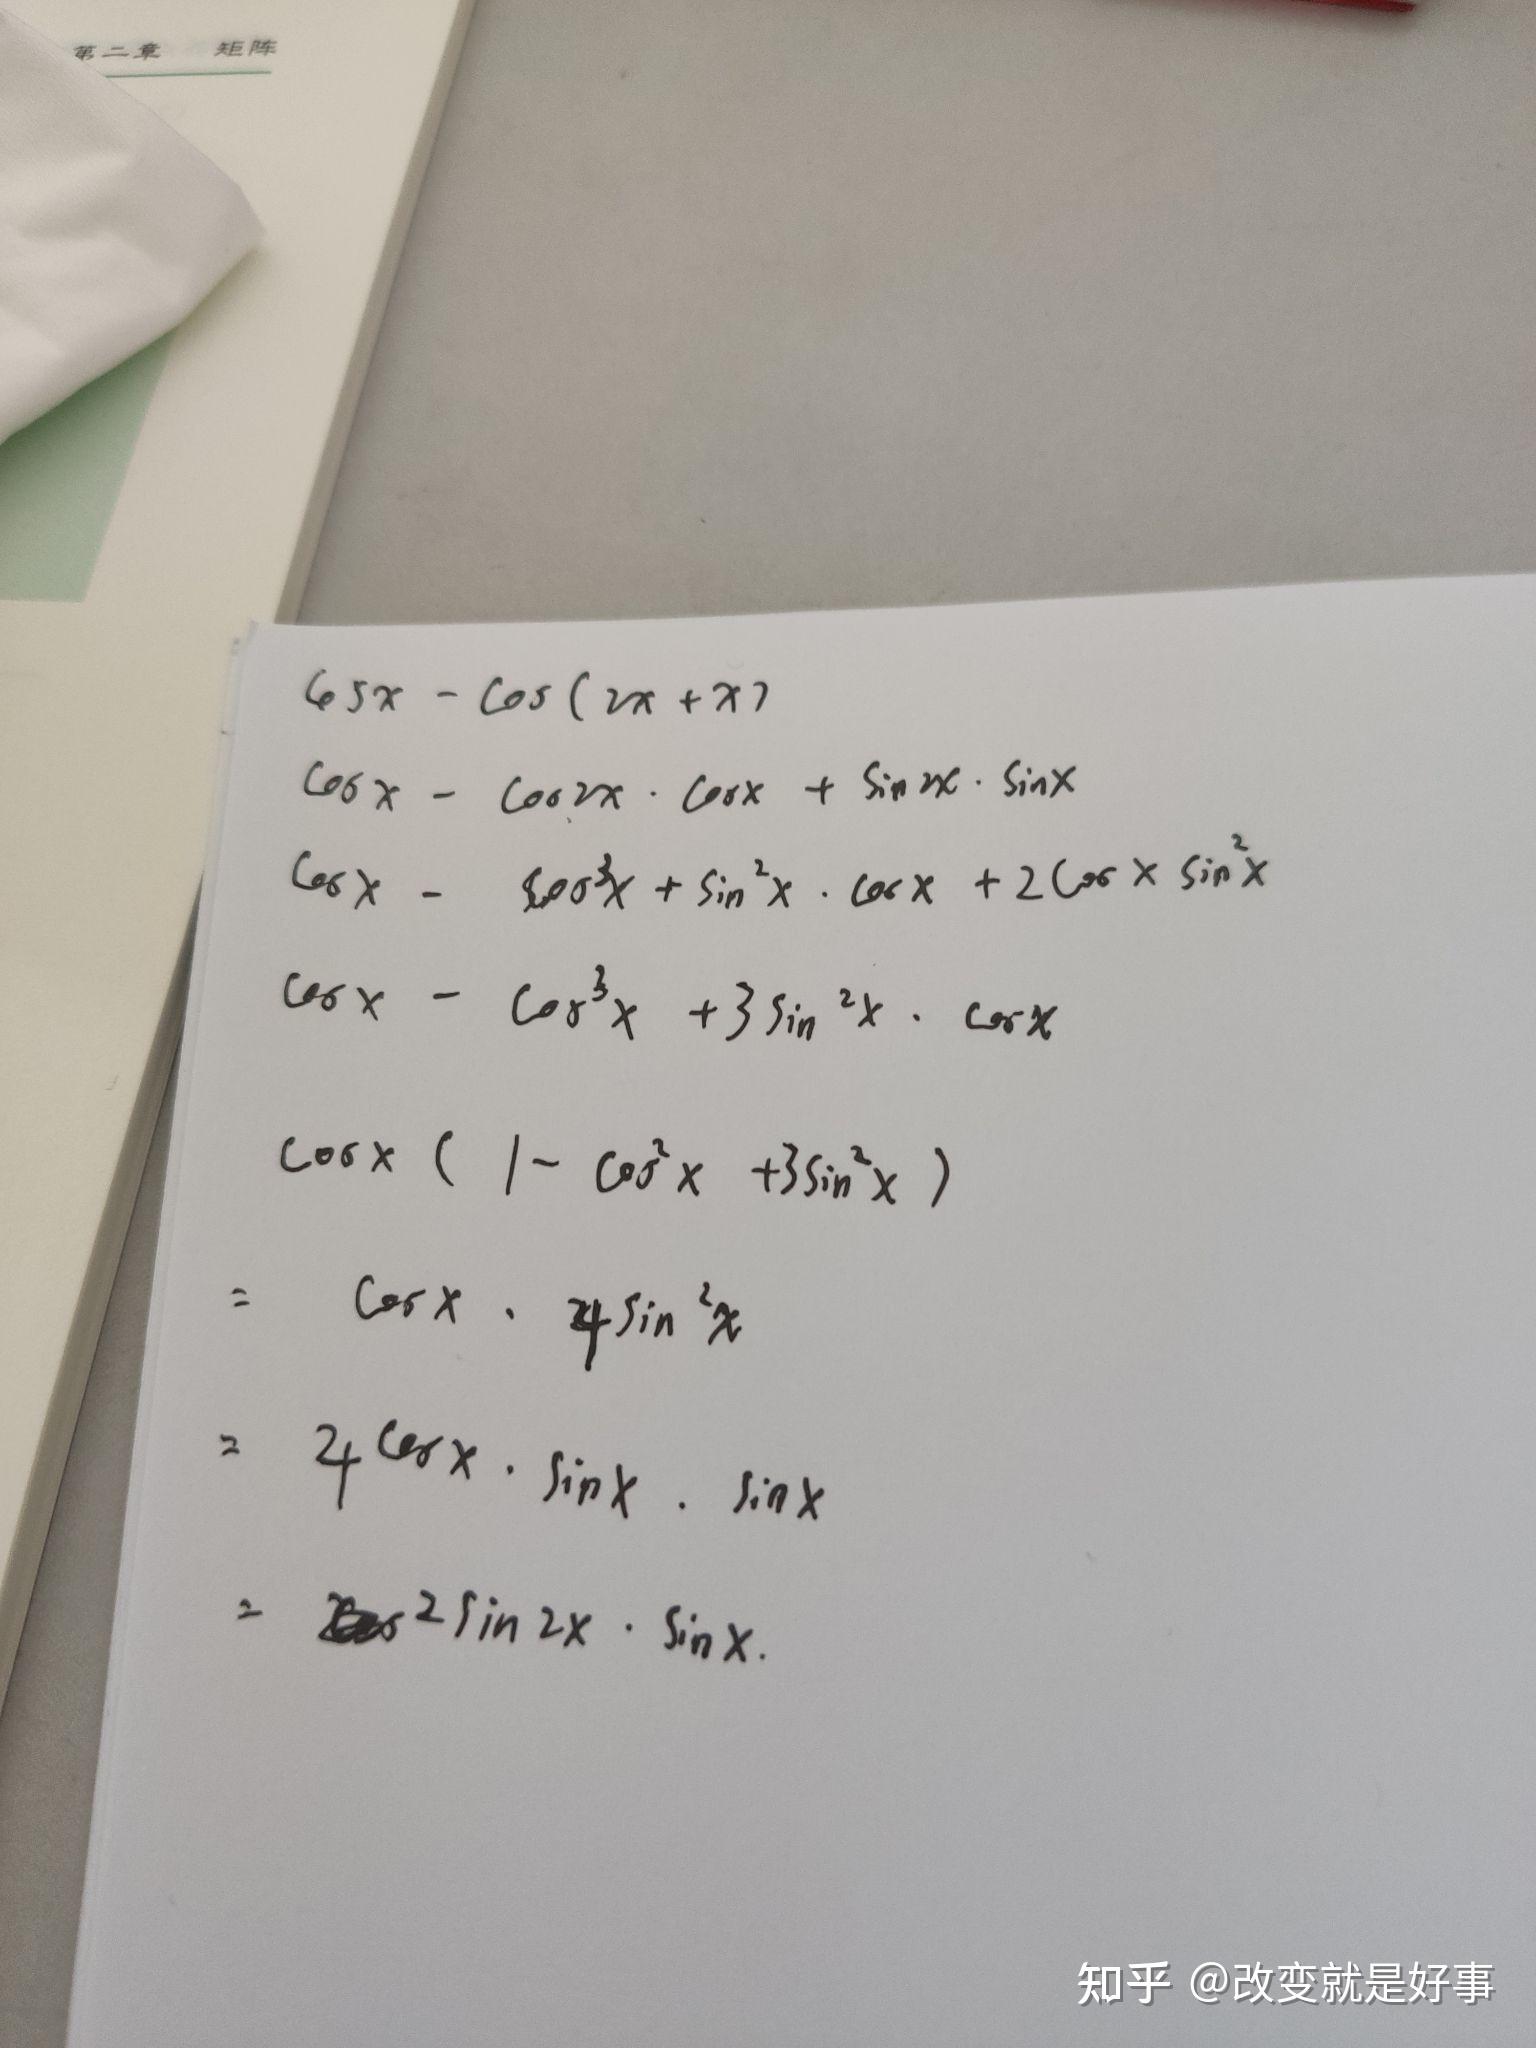 第二章 矩阵
cosx - cos(2x+x)
cosx - cos2x · cosx + sin2x · sinx
cosx - cos³x + sin²x · cosx + 2cosx sin²x
cosx - cos³x + 3sin²x · cosx
cosx ( 1 - cos²x + 3sin²x )
= cosx · 4sin²x
= 4cosx · sinx · sinx
= 2sin2x · sinx.
知乎 @改变就是好事